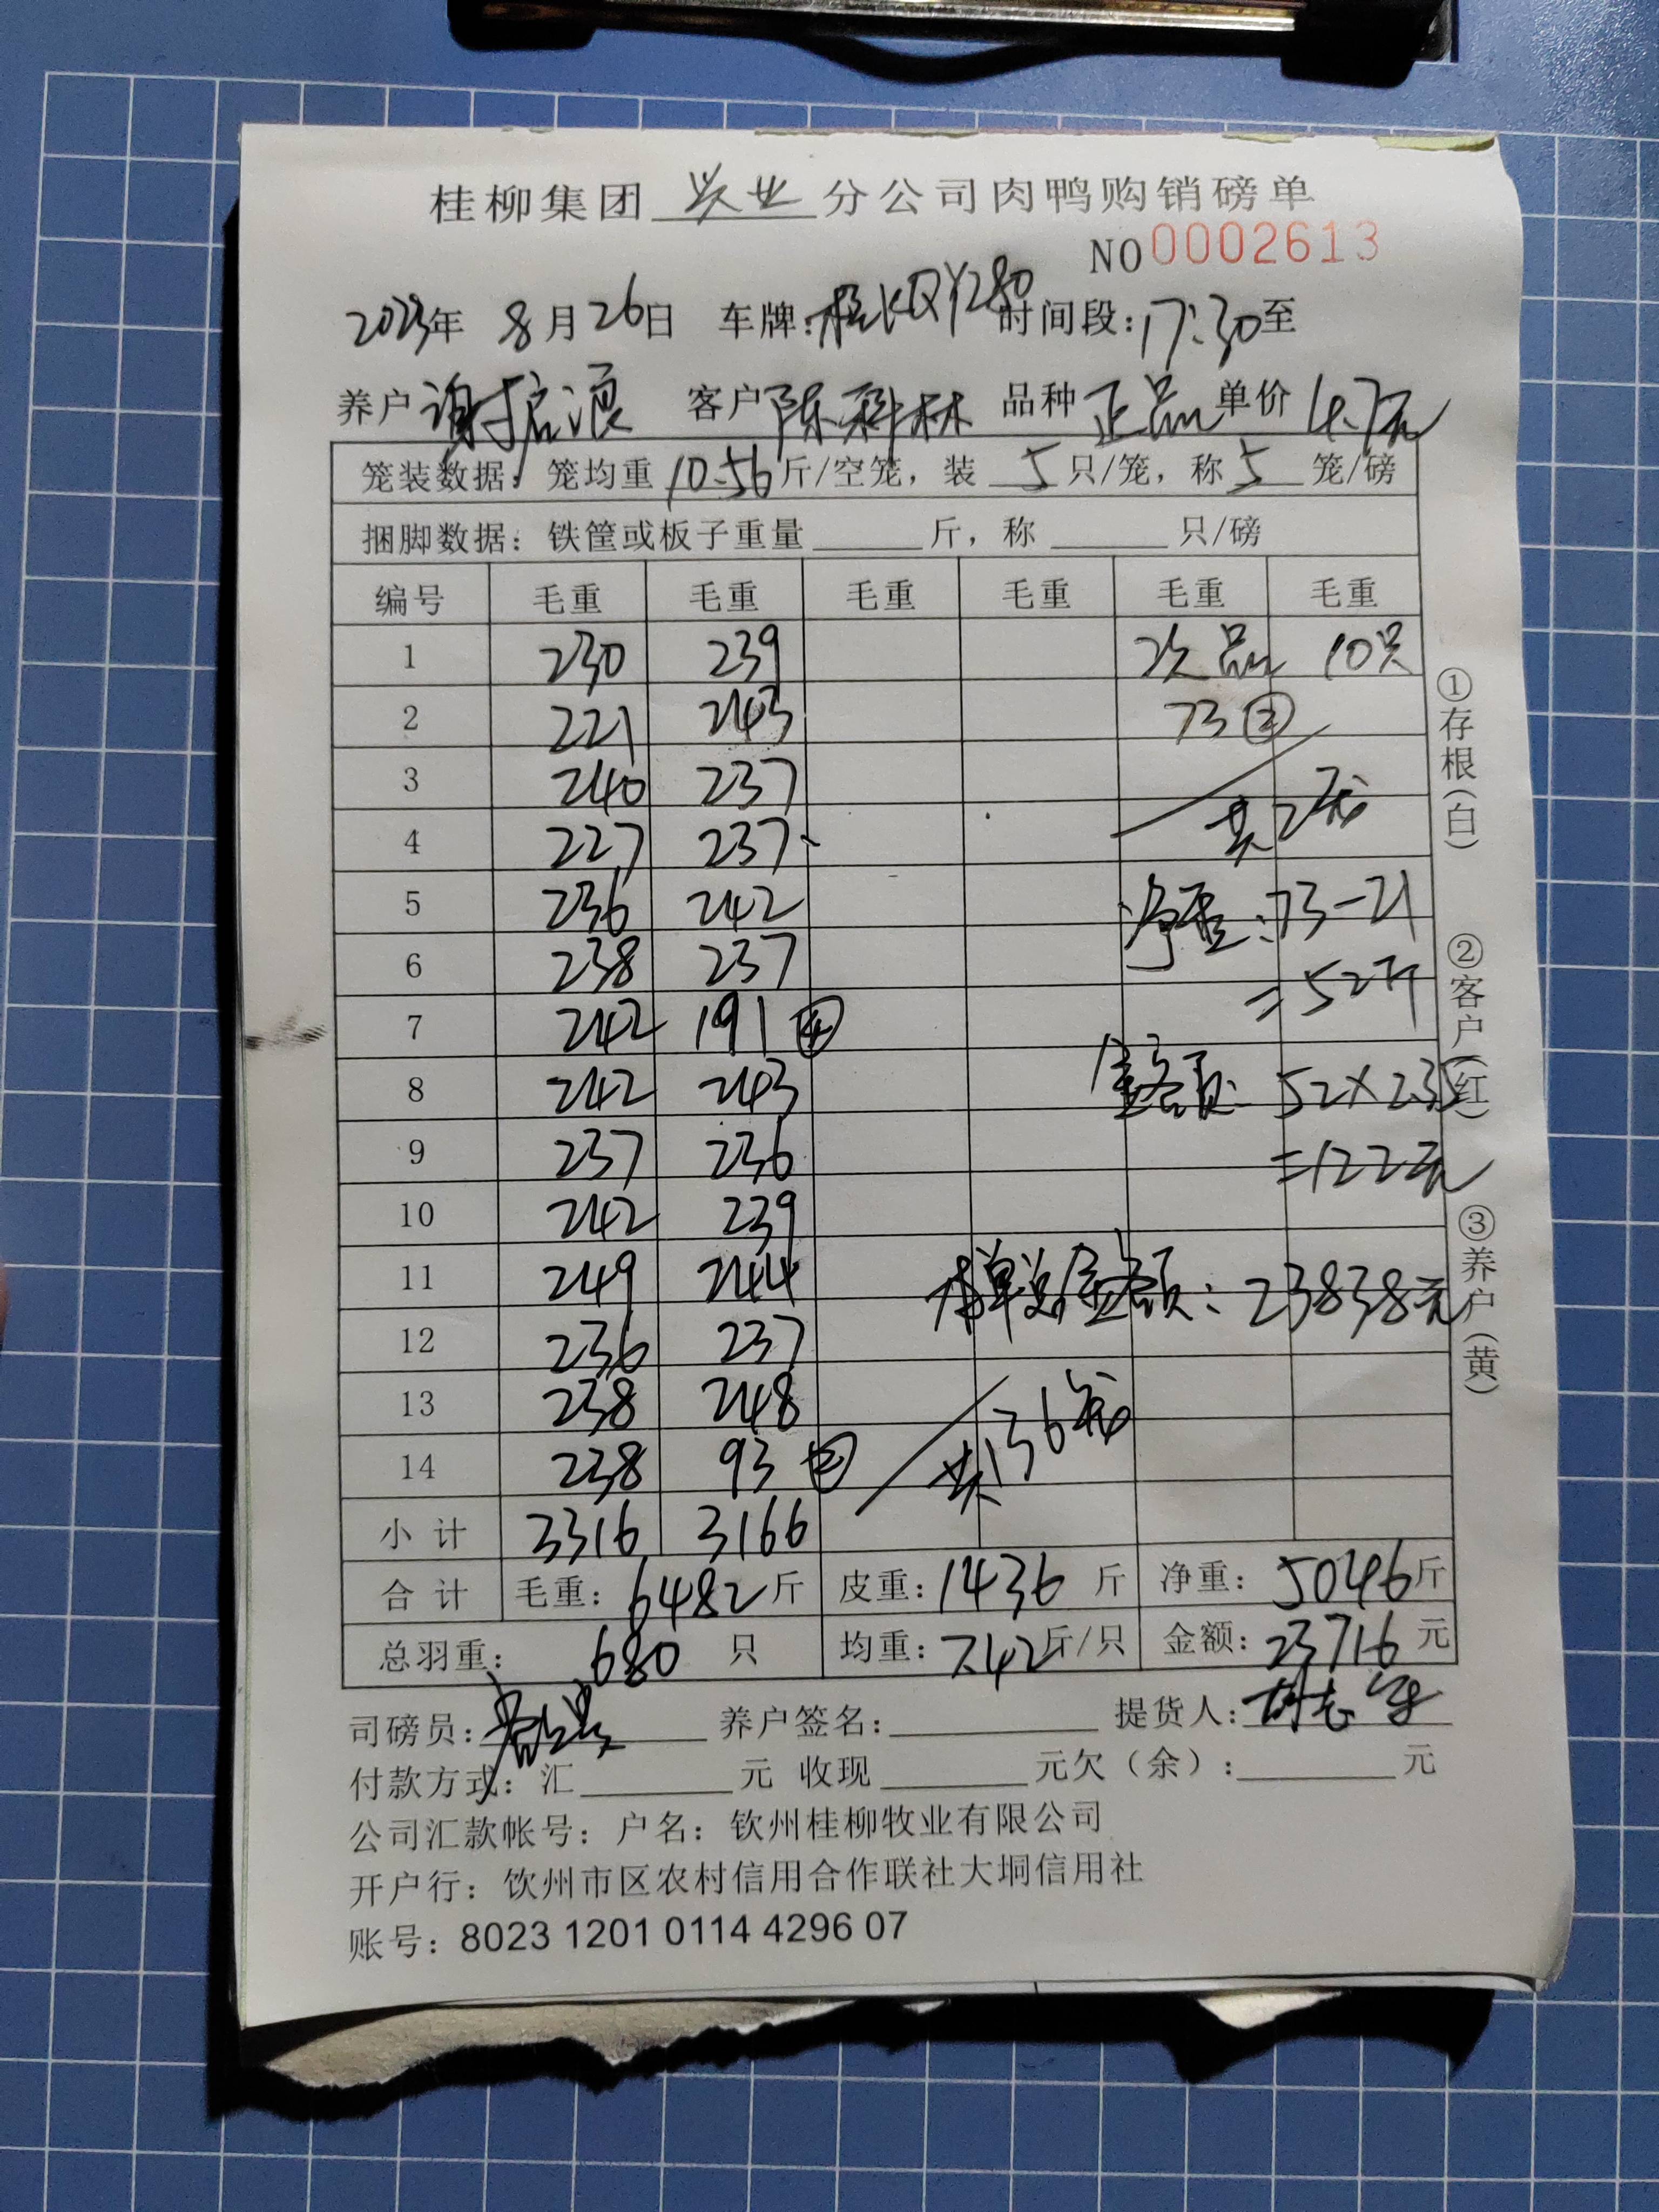 桂柳集团 兴业 分公司肉鸭购销磅单
NO 0002613
2023年 8月26日 车牌:桂KQY280 时间段:17:30至
养户 谢启浪 客户 陈科林 品种 正品 单价 4.7元
笼装数据: 笼均重 10.56 斤/空笼, 装 5 只/笼, 称 5 笼/磅
捆脚数据: 铁筐或板子重量 斤, 称 只/磅
编号 毛重 毛重 毛重 毛重 毛重 毛重
1 230 239 次品 10只
2 221 243 73②
3 240 237
4 227 237 共2笼
5 236 242 净重:73-21
6 238 237 =52斤
7 242 191④
8 242 243 金额: 52×2.35
9 237 236 =122元
10 242 239
11 249 244 本单总金额:23838元
12 236 237
13 238 248 共136笼
14 238 93②
小计 3316 3166
合计 毛重:6482斤 皮重:1436斤 净重:5046斤
总羽重: 680 只 均重:7.42斤/只 金额:23716元
司磅员: 养户签名: 提货人:
付款方式: 汇 元 收现 元欠(余): 元
公司汇款帐号: 户名: 钦州桂柳牧业有限公司
开户行: 钦州市区农村信用合作联社大垌信用社
账号: 8023 1201 0114 4296 07
①存根(白) ②客户(红) ③养户(黄)